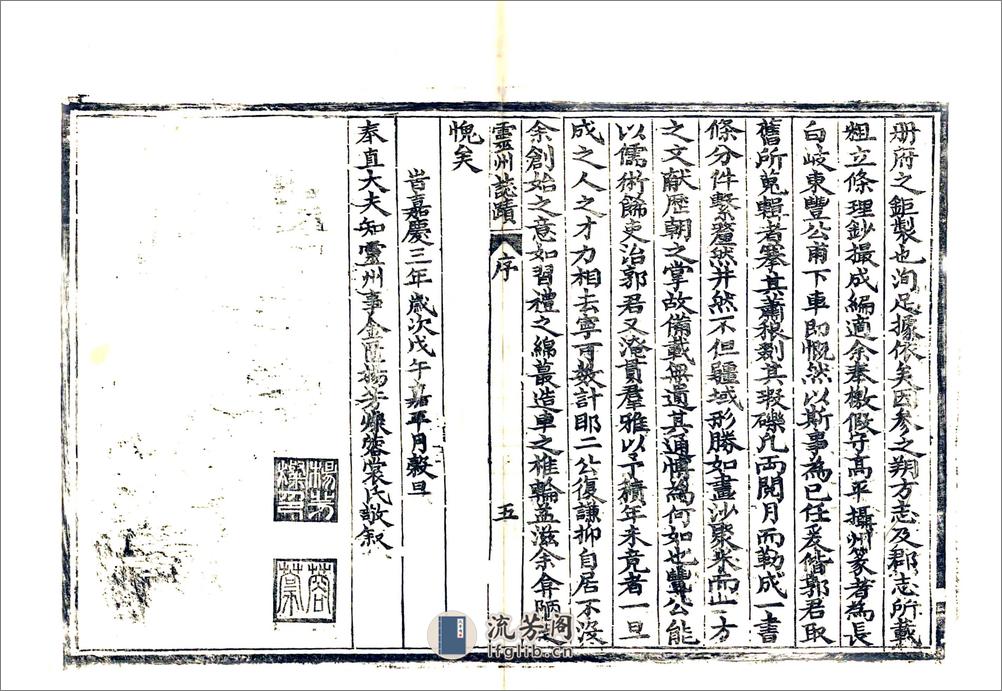 册府之鉅製也洵足據依矣因參之朔方志及郡志所載
粗立條理鈔撮成編適余奉檄假守高平攝州篆者為長
白岐東豐公甫下車即慨然以斯事為已任爰偕郭君取
舊所蒐輯者搴其蕭稂剔其瑕礫凡兩閱月而勒成一書
條分件繫釐然井然不但疆域形勝如畫沙聚米而止一方
之文献歷朝之掌故備載無遺其通博為何如也豐公能
以儒術飾吏治郭君又淹貫羣雅以予積年未竟者一旦
成之人之才力相去寧可數計耶二公復謙抑自居不沒
余創始之意如習禮之綿蕞造車之椎輪益滋余弇陋之
靈州誌蹟
序
五
愧矣
旹嘉慶三年歲次戊午嘉平月穀旦
奉直大夫知靈州事金匱楊芳燦蓉裳氏敬叙
楊芳燦印
蓉裳
流芳阁
lfglib.cn